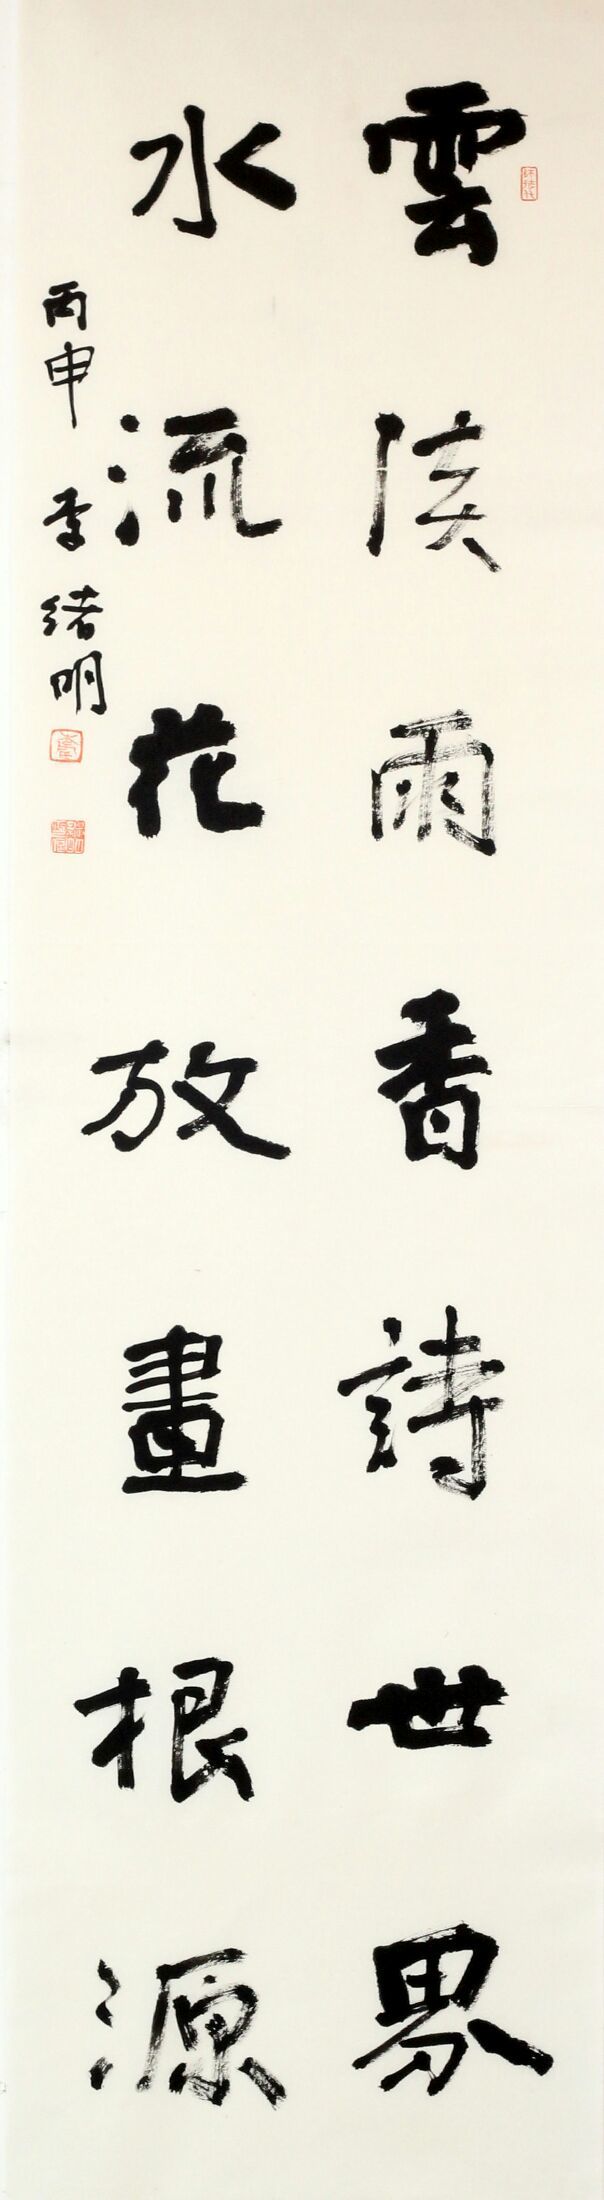 雲淡雨香詩世界
水流花放畫根源
丙申 李緒明